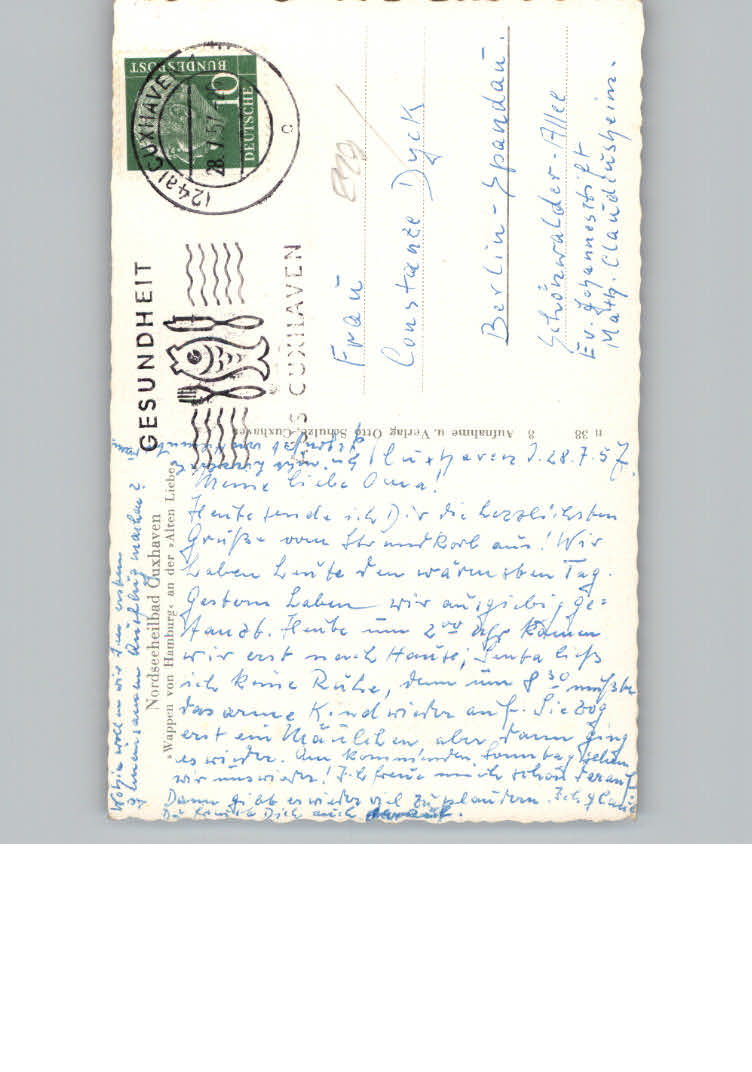 DEUTSCHE
BUNDESPOST
10
(24a) CUXHAVEN
28.7.57
c
GESUNDHEIT
AUS CUXHAVEN
Frau
Constanze Dyck
Berlin-Spandau.
Schönwalder-Allee
Ev. Johannesstift
Math. Claudiusheim.
n 38 8 Aufnahme u. Verlag Otto Schulze, Cuxhaven
Nordseeheilbad Cuxhaven
»Wappen von Hamburg« an der »Alten Liebe«
Cuxhaven, d. 28.7.57.
Meine liebe Oma!
Heute sende ich Dir die herzlichsten
Grüße vom Strandkorb aus! Wir
haben heute den wärmsten Tag.
Gestern haben wir ausgiebig ge=
tanzt. Heute um 2⁰⁰ Uhr kamen
wir erst nach Hause; Senta ließ
ich keine Ruhe, denn um 8³⁰ mußte
das arme Kind wieder auf. Sie zog
erst ein Mäulchen, aber dann ging
es wieder. Am kommenden Sonntag sehen
wir uns wieder! Ich freue mich schon darauf.
Dann gibt es wieder viel zu plaudern. Ich glaube
Du freust Dich auch darauf.
Wohin wollen wir den ersten
gemeinsamen Ausflug machen?